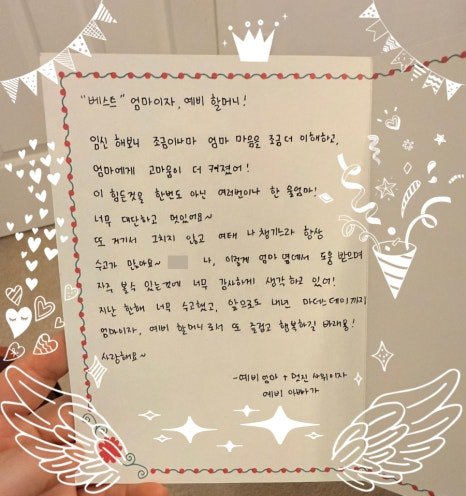 "베스트" 엄마이자, 예비 할머니!
임신 해보니 조금이나마 엄마 마음을 조금 더 이해하고,
엄마에게 고마움이 더 커졌어!
이 힘든것을 한번도 아닌 여러번이나 한 울엄마!
너무 대단하고 멋있어요~
또 거기서 그치지 않고 여태 나 챙기느라 항상
수고가 많아요~ 나, 이렇게 엄마 옆에서 도움 받으며
자주 볼수 있는것에 너무 감사하게 생각 하고 있어!
지난 한해 너무 수고했고, 앞으로도 내년 마더스데이까지
엄마이자, 예비 할머니로서 또 즐겁고 행복하길 바래용!
사랑해요~
-예비엄마 + 멋진 사위이자
예비 아빠가